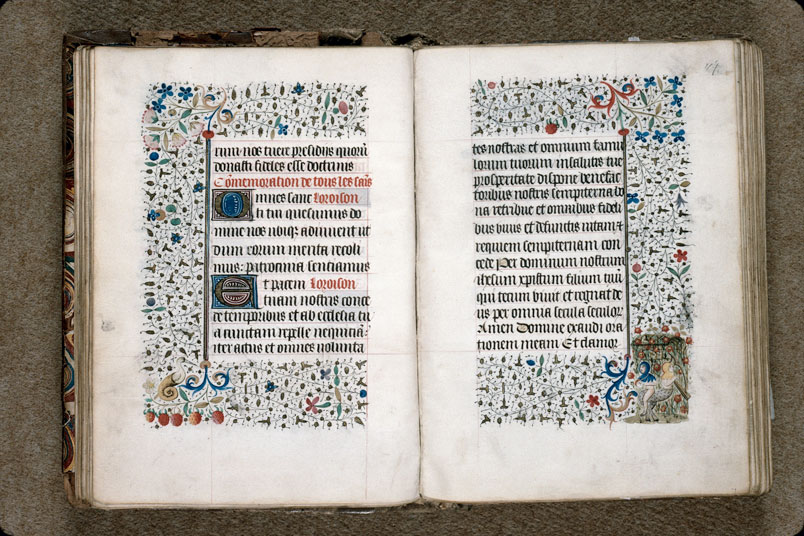 tum nos tuere presidiis quorū
donasti fideles esse doctrinis
Cōmemoration de tous les saīs
Omnes sancti Loroison
tui quesumus do
mine nos ubiqз adiuvent ut
dum eorum merita recoli
mus patrocinia sentiamus
Et pacem Loroison
tuam nostris conce
de temporibus et ab ecclesia tu
a cunctam repelle nequitiā
iter actus et omnes volunta
tes nostras et omnium famu
lorum tuorum in salutis tue
prosperitate dispone benefac
toribus nostris sempiterna bo
na retribue et omnibus fideli
bus vivis et defunctis vitam et
requiem sempiternam con
cede Per dominum nostrum
ihesum xpistum filium tuū
qui tecum vivit et regnat de
us per omnia secula seculoꝝ
Amen Domine exaudi ora
tionem meam Et clamoꝛ